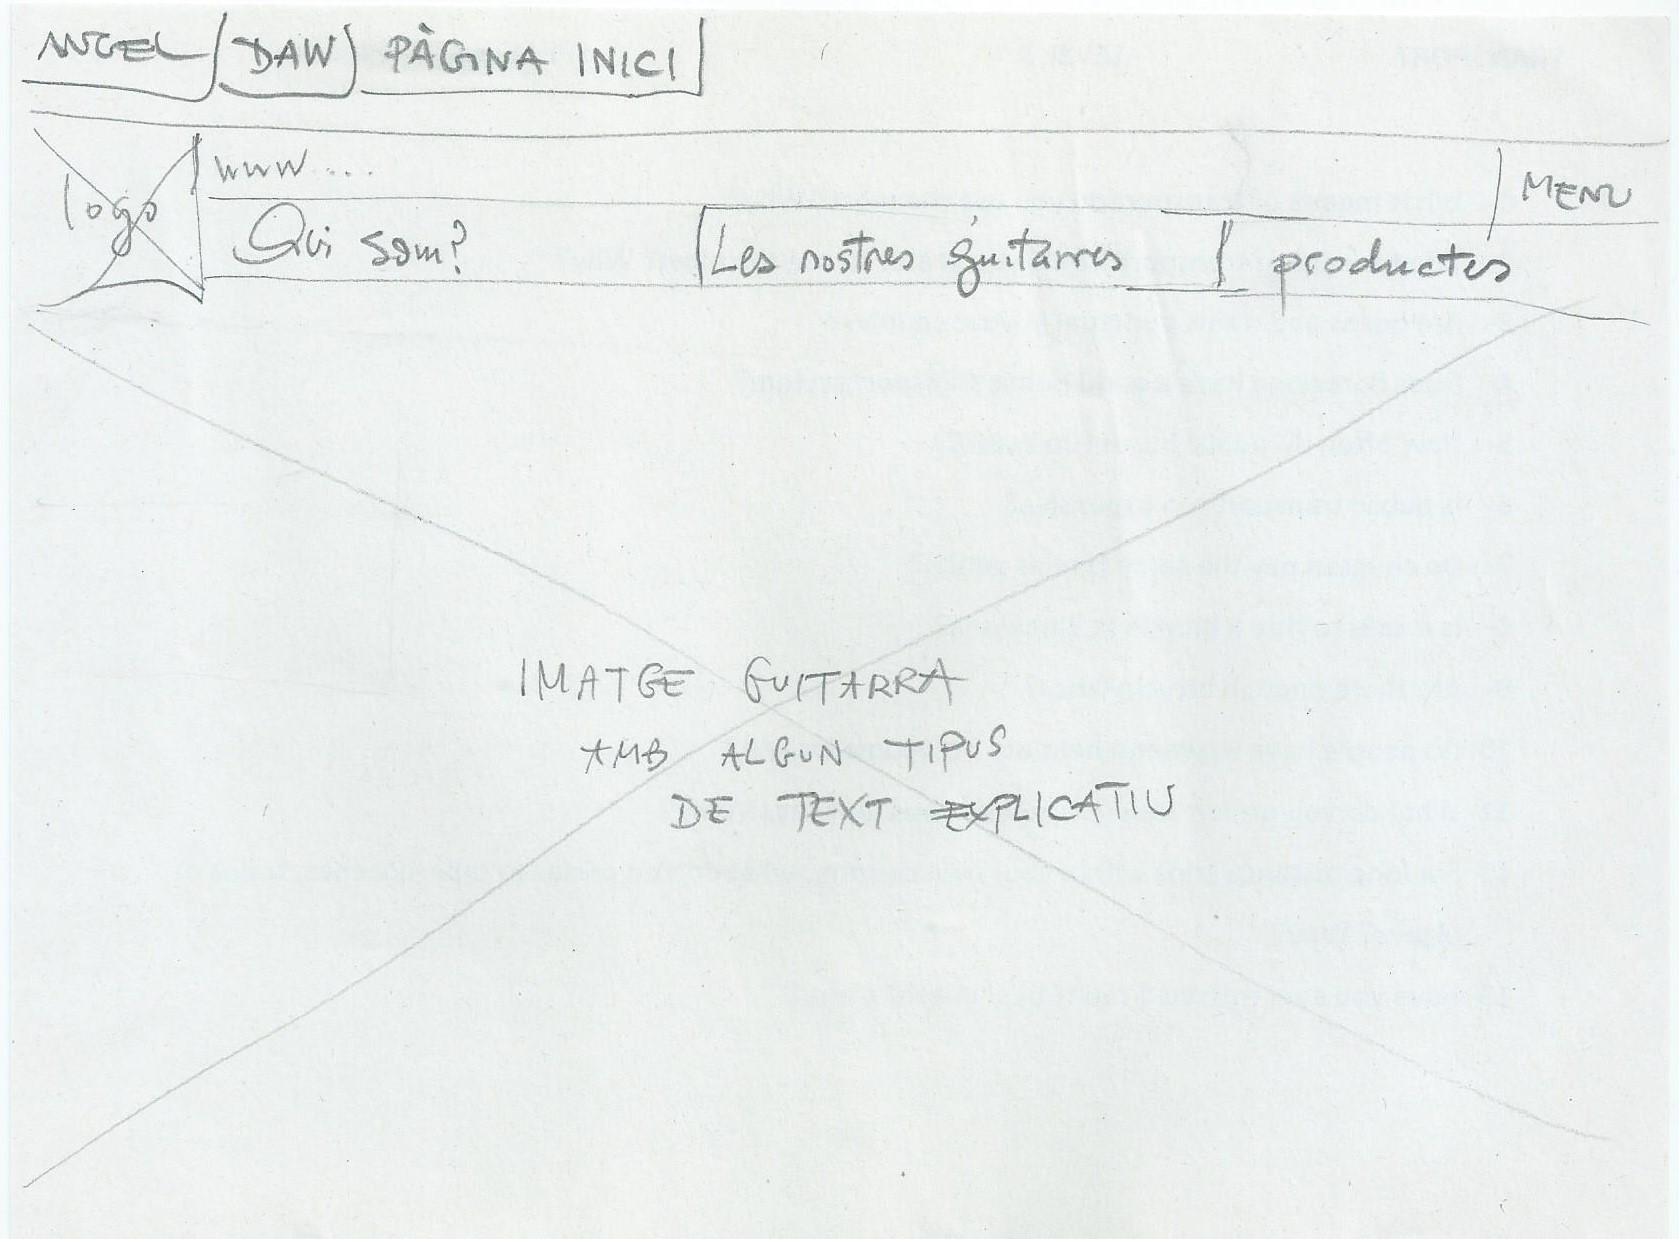 ANGEL DAW PÀGINA INICI
logo
www....
MENU
Qui som?
Les nostres guitarres
productes
IMATGE GUITARRA
AMB ALGUN TIPUS
DE TEXT EXPLICATIU